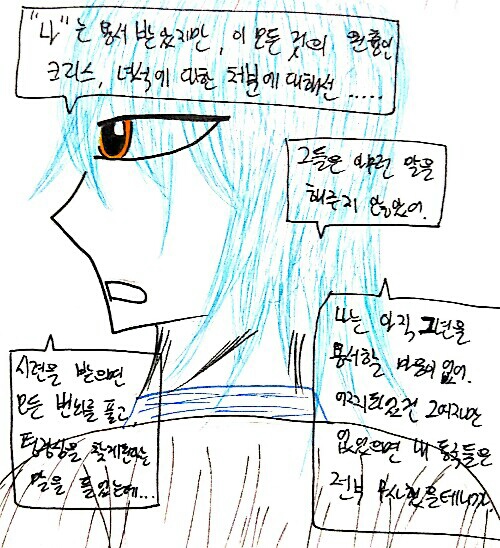 "나"는 용서 받았지만, 이 모든 것의 원흉인
크리스, 녀석에 대한 처분에 대해선.....
그들은 아무런 말을
해주지 않았어.
나는 아직 그년을
용서할 마음이 없어.
어찌되었건 그여자만
없었으면 내 동족들은
전부 무사했을테니까.
시련을 받으면
모든 번뇌를 풀고,
평정심을 찾게된다는
말을 들었는데...